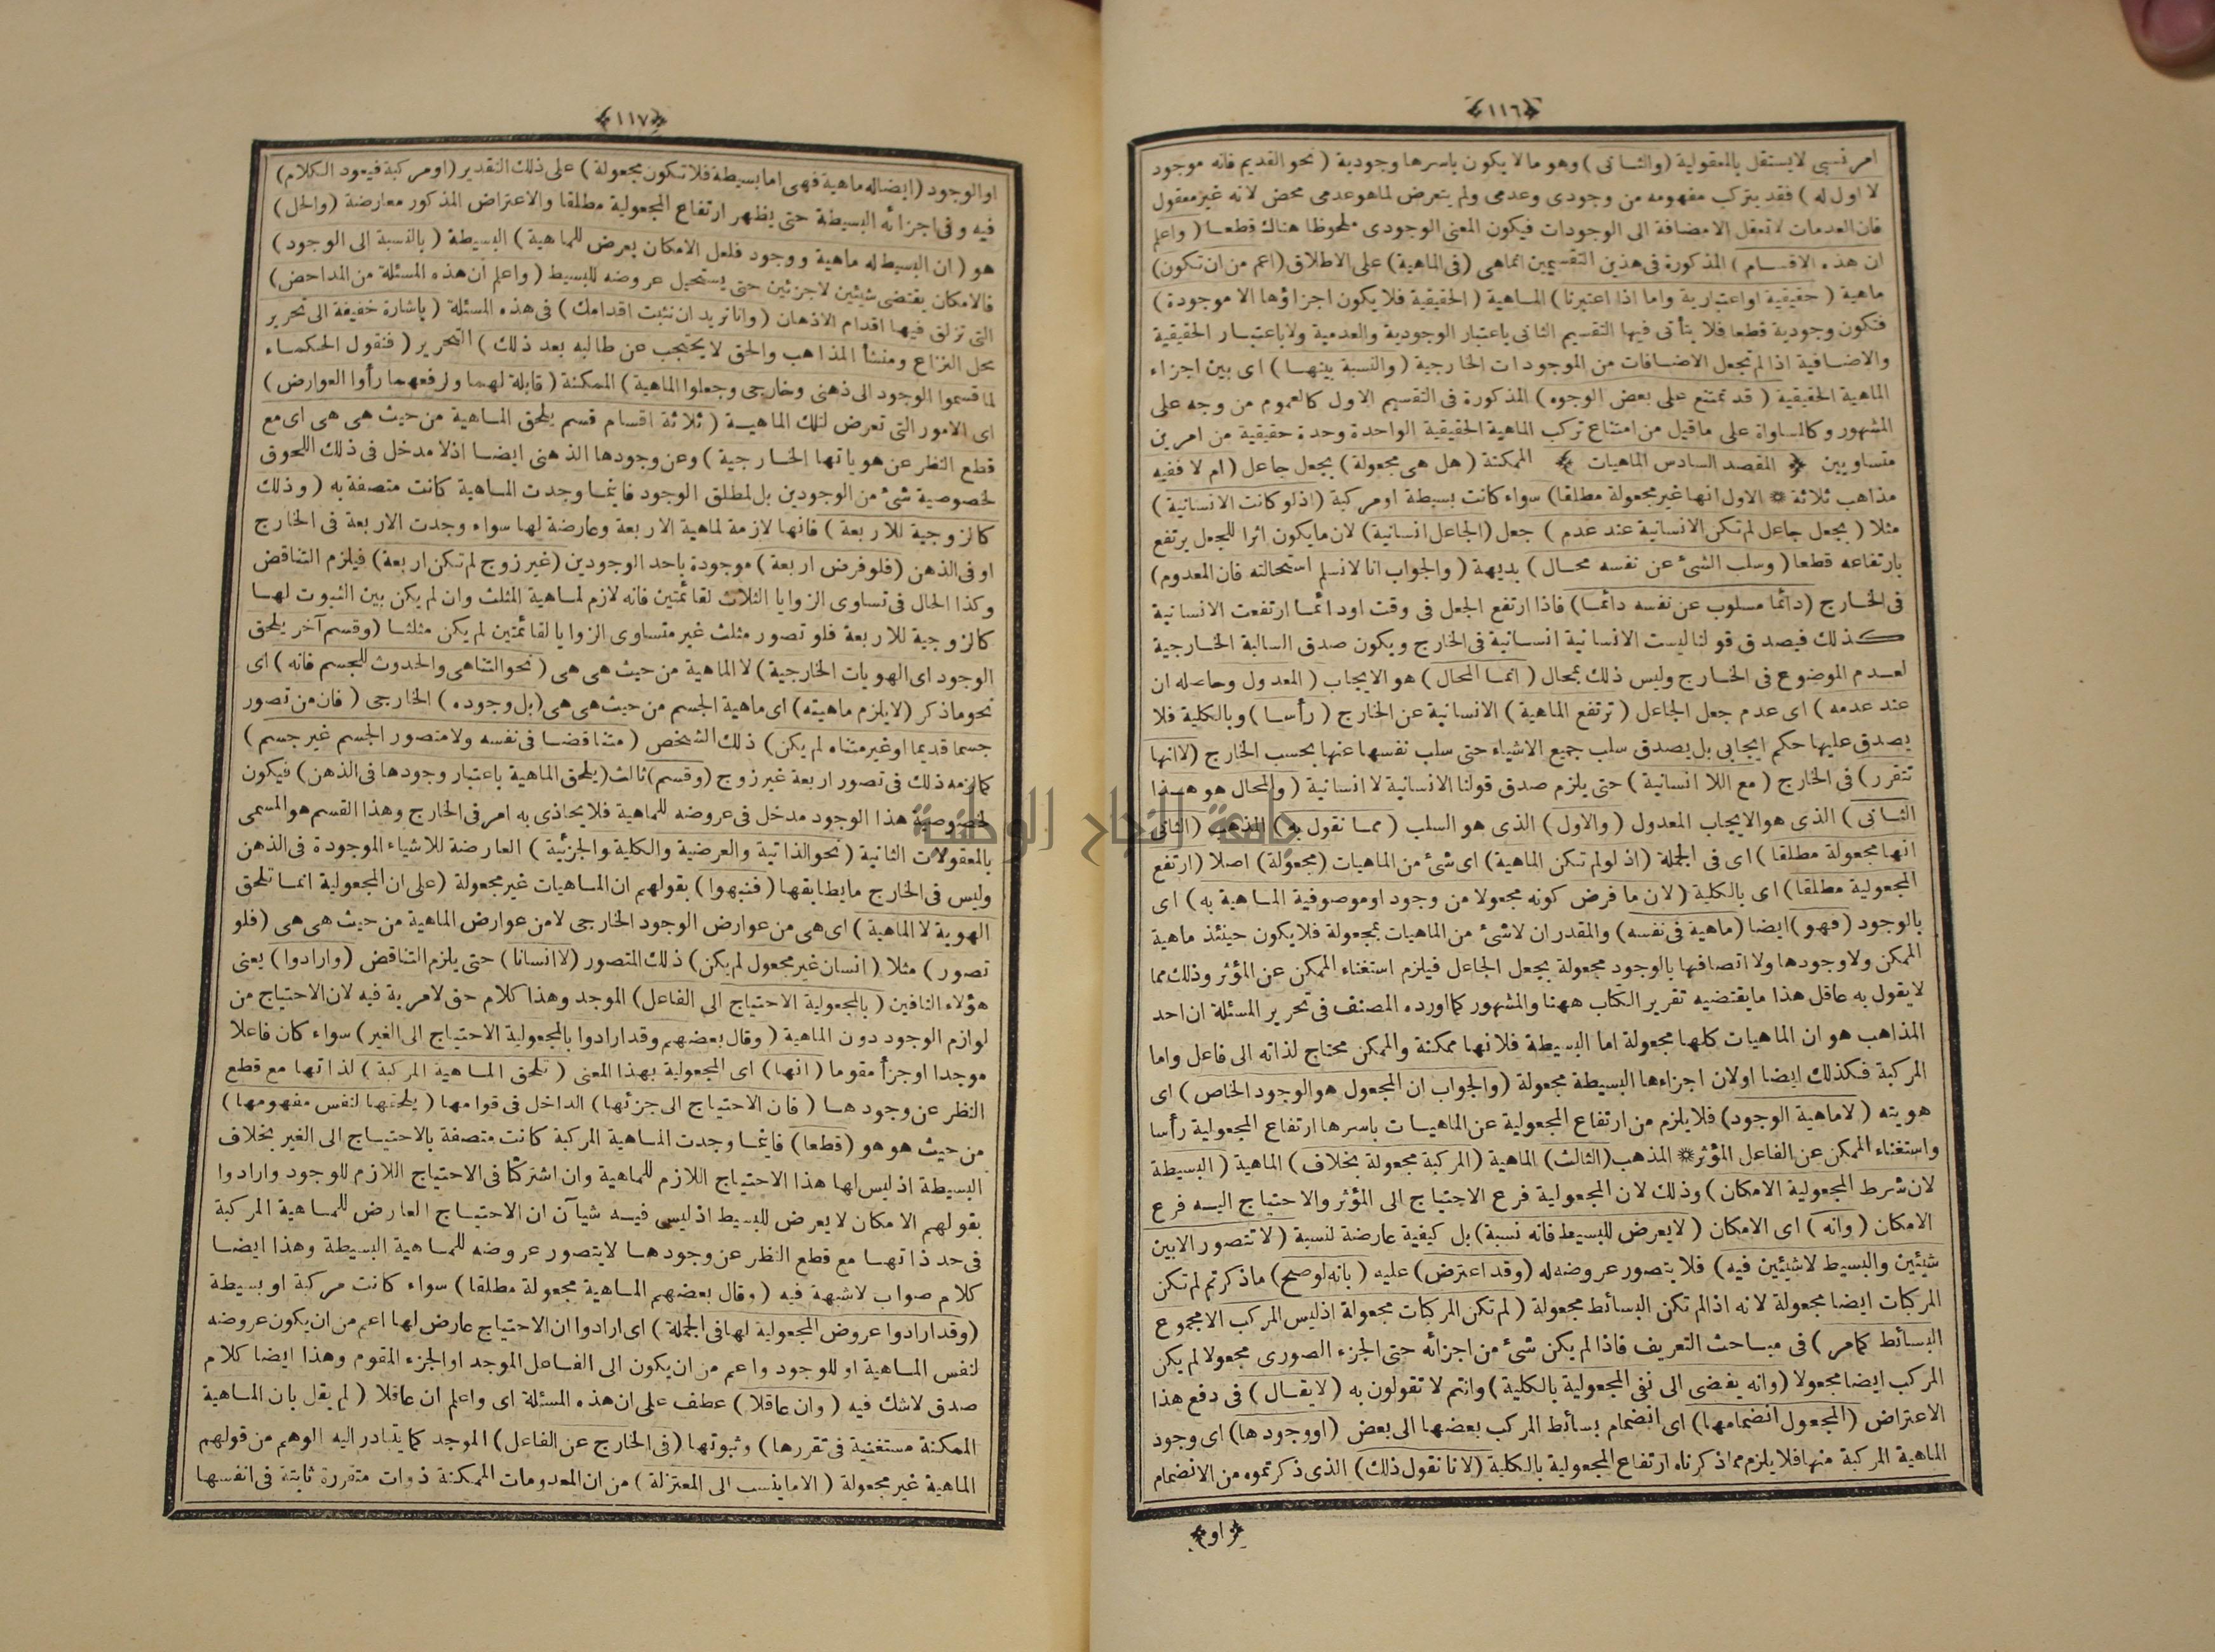 ﴿١١٦﴾
امر نسبى لايستقل بالمعقولية (والثانى) وهو مالا يكون باسرها وجودية (نحو القديم فانه موجود
لا اول له) فقد يتركب مفهومه من وجودى وعدمى ولم يتعرض لما هو عدمى محض لانه غير معقول
فان العدمات لا تعقل الا مضافة الى الوجودات فيكون المعنى الوجودى ملحوظا هناك قطعا (واعلم
ان هذه الاقسام) المذكورة فى هذين التقسيمين انماهى (فى الماهية) على الاطلاق (اعم من ان تكون)
ماهية (حقيقية او اعتبارية واما اذا اعتبرنا) الماهية (الحقيقية فلا يكون اجزاؤها الا موجودة)
فتكون وجودية قطعا فلا يتأتى فيها التقسيم الثانى باعتبار الوجودية والعدمية ولا باعتبار الحقيقية
والاضافية اذا لم تجعل الاضافات من الموجودات الخارجية (والنسبة بينها) اى بين اجزاء
الماهية الحقيقية (قد تمتنع على بعض الوجوه) المذكورة فى التقسيم الاول كالعموم من وجه على
المشهور وكالمساواة على ماقيل من امتناع تركب الماهية الحقيقية الواحدة وحدة حقيقية من امرين
متساويين ﴿ المقصد السادس الماهيات ﴾ الممكنة (هل هى مجعولة) بجعل جاعل (ام لا ففيه
مذاهب ثلاثة * الاول انها غير مجعولة مطلقا) سواء كانت بسيطة او مركبة (اذ لو كانت الانسانية)
مثلا (بجعل جاعل لم تكن الانسانية عند عدم) جعل (الجاعل انسانية) لان ما يكون اثرا للجعل يرتفع
بارتفاعه قطعا (وسلب الشئ عن نفسه محال) بديهة (والجواب انا لانسلم استحالته فان المعدوم)
فى الخارج (دائما مسلوب عن نفسه دائما) فاذا ارتفع الجعل فى وقت او دائما ارتفعت الانسانية
كذلك فيصدق قولنا ليست الانسانية انسانية فى الخارج ويكون صدق السالبة الخارجية
لعدم الموضوع فى الخارج وليس ذلك بمحال (انما المحال) هو الايجاب (المعدول وحاصله ان
عند عدمه) اى عدم جعل الجاعل (ترتفع الماهية) الانسانية عن الخارج (رأسا) وبالكلية فلا
يصدق عليها حكم ايجابى بل يصدق سلب جميع الاشياء حتى سلب نفسها عنها بحسب الخارج (لا انها
تتقرر) فى الخارج (مع اللا انسانية) حتى يلزم صدق قولنا الانسانية لا انسانية (والمحال هو هذا
الثانى) الذى هو الايجاب المعدول (والاول) الذى هو السلب (مما نقول به) المذهب (الثانى
انها مجعولة مطلقا) اى فى الجملة (اذ لو لم تكن الماهية) اى شئ من الماهيات (مجعولة) اصلا (ارتفع
المجعولية مطلقا) اى بالكلية (لان ما فرض كونه مجعولا من وجود او موصوفية الماهية به) اى
بالوجود (فهو) ايضا (ماهية فى نفسه) والمقدر ان لا شئ من الماهيات بمجعولة فلا يكون حينئذ ماهية
الممكن ولا وجودها ولا اتصافها بالوجود مجعولة بجعل الجاعل فيلزم استغناء الممكن عن المؤثر وذلك مما
لا يقول به عاقل هذا ما يقتضيه تقرير الكتاب ههنا والمشهور كما اورده المصنف فى تحرير المسئلة ان احد
المذاهب هو ان الماهيات كلها مجعولة اما البسيطة فلانها ممكنة والممكن محتاج لذاته الى فاعل واما
المركبة فكذلك ايضا او لان اجزاءها البسيطة مجعولة (والجواب ان المجعول هو الوجود الخاص) اى
هويته (لا ماهية الوجود) فلا يلزم من ارتفاع المجعولية عن الماهيات باسرها ارتفاع المجعولية رأسا
واستغناء الممكن عن الفاعل المؤثر * المذهب (الثالث) الماهية (المركبة مجعولة بخلاف) الماهية (البسيطة
لان شرط المجعولية الامكان) وذلك لان المجعولية فرع الاحتياج الى المؤثر والاحتياج اليه فرع
الامكان (وانه) اى الامكان (لا يعرض للبسيط فانه نسبة) بل كيفية عارضة لنسبة (لا تتصور الا بين
شيئين والبسيط لا شيئين فيه) فلا يتصور عروضه له (وقد اعترض) عليه (بانه لو صح) ما ذكرتم لم تكن
المركبات ايضا مجعولة لانه اذا لم تكن البسائط مجعولة (لم تكن المركبات مجعولة اذ ليس المركب الا مجموع
البسائط كما مر) فى مباحث التعريف فاذا لم يكن شئ من اجزائه حتى الجزء الصورى مجعولا لم يكن
المركب ايضا مجعولا (وانه يفضى الى نفى المجعولية بالكلية) وانتم لا تقولون به (لا يقال) فى دفع هذا
الاعتراض (المجعول انضمامها) اى انضمام بسائط المركب بعضها الى بعض (او وجودها) اى وجود
الماهية المركبة منها فلا يلزم مما ذكرناه ارتفاع المجعولية بالكلية (لانا نقول ذلك) الذى ذكرتموه من الانضمام
﴿او﴾
﴿١١٧﴾
او الوجود (ايضا له ماهية فهى اما بسيطة فلا تكون مجعولة) على ذلك التقدير (او مركبة فيعود الكلام)
فيه وفى اجزائه البسيطة حتى يظهر ارتفاع المجعولية مطلقا والاعتراض المذكور معارضة (والحل)
هو (ان البسيط له ماهية ووجود فلعل الامكان يعرض للماهية) البسيطة (بالنسبة الى الوجود)
فالامكان يقتضى شيئين لا جزئين حتى يستحيل عروضه للبسيط (واعلم ان هذه المسئلة من المداحض)
التى تزلق فيها اقدام الاذهان (وانا نريد ان نثبت اقدامك) فى هذه المسئلة (باشارة خفيفة الى تحرير
محل النزاع ومنشأ المذاهب والحق لا يحتجب عن طالبه بعد ذلك) التحرير (فنقول الحكماء
لما قسموا الوجود الى ذهنى وخارجى وجعلوا الماهية) الممكنة (قابلة لهما ولرفعهما رأوا العوارض)
اى الامور التى تعرض لتلك الماهية (ثلاثة اقسام قسم يلحق الماهية من حيث هى هى اى مع
قطع النظر عن هوياتها الخارجية) وعن وجودها الذهنى ايضا اذ لا مدخل فى ذلك اللحوق
لخصوصية شئ من الوجودين بل لمطلق الوجود فاينما وجدت الماهية كانت متصفة به (وذلك
كالزوجية للاربعة) فانها لازمة لماهية الاربعة وعارضة لها سواء وجدت الاربعة فى الخارج
او فى الذهن (فلو فرض اربعة) موجودة باحد الوجودين (غير زوج لم تكن اربعة) فيلزم التناقض
وكذا الحال فى تساوى الزوايا الثلاث لقائمتين فانه لازم لماهية المثلث وان لم يكن بين الثبوت لها
كالزوجية للاربعة فلو تصور مثلث غير متساوى الزوايا لقائمتين لم يكن مثلثا (وقسم آخر يلحق
الوجود اى الهويات الخارجية) لا الماهية من حيث هى هى (نحو التناهى والحدوث للجسم فانه) اى
نحو ما ذكر (لا يلزم ماهيته) اى ماهية الجسم من حيث هى هى (بل وجوده) الخارجى (فان من تصور
جسما قديما او غير متناه لم يكن) ذلك الشخص (متناقضا فى نفسه ولا متصور الجسم غير جسم)
كما لزمه ذلك فى تصور اربعة غير زوج (وقسم) ثالث (يلحق الماهية باعتبار وجودها فى الذهن) فيكون
لخصوصية هذا الوجود مدخل فى عروضه للماهية فلا يحاذى به امر فى الخارج وهذا القسم هو المسمى
بالمعقولات الثانية (نحو الذاتية والعرضية والكلية والجزئية) العارضة للاشياء الموجودة فى الذهن
وليس فى الخارج ما يطابقها (فنبهوا) بقولهم ان الماهيات غير مجعولة (على ان المجعولية انما تلحق
الهوية لا الماهية) اى هى من عوارض الوجود الخارجى لا من عوارض الماهية من حيث هى هى (فلو
تصور) مثلا (انسان غير مجعول لم يكن) ذلك المتصور (لا انسانا) حتى يلزم التناقض (وارادوا) يعنى
هؤلاء النافين (بالمجعولية الاحتياج الى الفاعل) الموجد وهذا كلام حق لا مرية فيه لان الاحتياج من
لوازم الوجود دون الماهية (وقال بعضهم وقد ارادوا بالمجعولية الاحتياج الى الغير) سواء كان فاعلا
موجدا او جزأ مقوما (انها) اى المجعولية بهذا المعنى (تلحق الماهية المركبة) لذاتها مع قطع
النظر عن وجودها (فان الاحتياج الى جزئها) الداخل فى قوامها (يلحقها لنفس مفهومها)
من حيث هو هو (قطعا) فاينما وجدت الماهية المركبة كانت متصفة بالاحتياج الى الغير بخلاف
البسيطة اذ ليس لها هذا الاحتياج اللازم للماهية وان اشتركتا فى الاحتياج اللازم للوجود وارادوا
بقولهم الامكان لا يعرض للبسيط اذ ليس فيه شيآن ان الاحتياج العارض للماهية المركبة
فى حد ذاتها مع قطع النظر عن وجودها لا يتصور عروضه للماهية البسيطة وهذا ايضا
كلام صواب لا شبهة فيه (وقال بعضهم الماهية مجعولة مطلقا) سواء كانت مركبة او بسيطة
(وقد ارادوا عروض المجعولية لها فى الجملة) اى ارادوا ان الاحتياج عارض لها اعم من ان يكون عروضه
لنفس الماهية او للوجود واعم من ان يكون الى الفاعل الموجد او الجزء المقوم وهذا ايضا كلام
صدق لا شك فيه (وان عاقلا) عطف على ان هذه المسئلة اى واعلم ان عاقلا (لم يقل بان الماهية
الممكنة مستغنية فى تقررها) وثبوتها (فى الخارج عن الفاعل) الموجد كما يتبادر اليه الوهم من قولهم
الماهية غير مجعولة (الا ما ينسب الى المعتزلة) من ان المعدومات الممكنة ذوات متقررة ثابتة فى انفسها
جامعة النجاح الوطنية